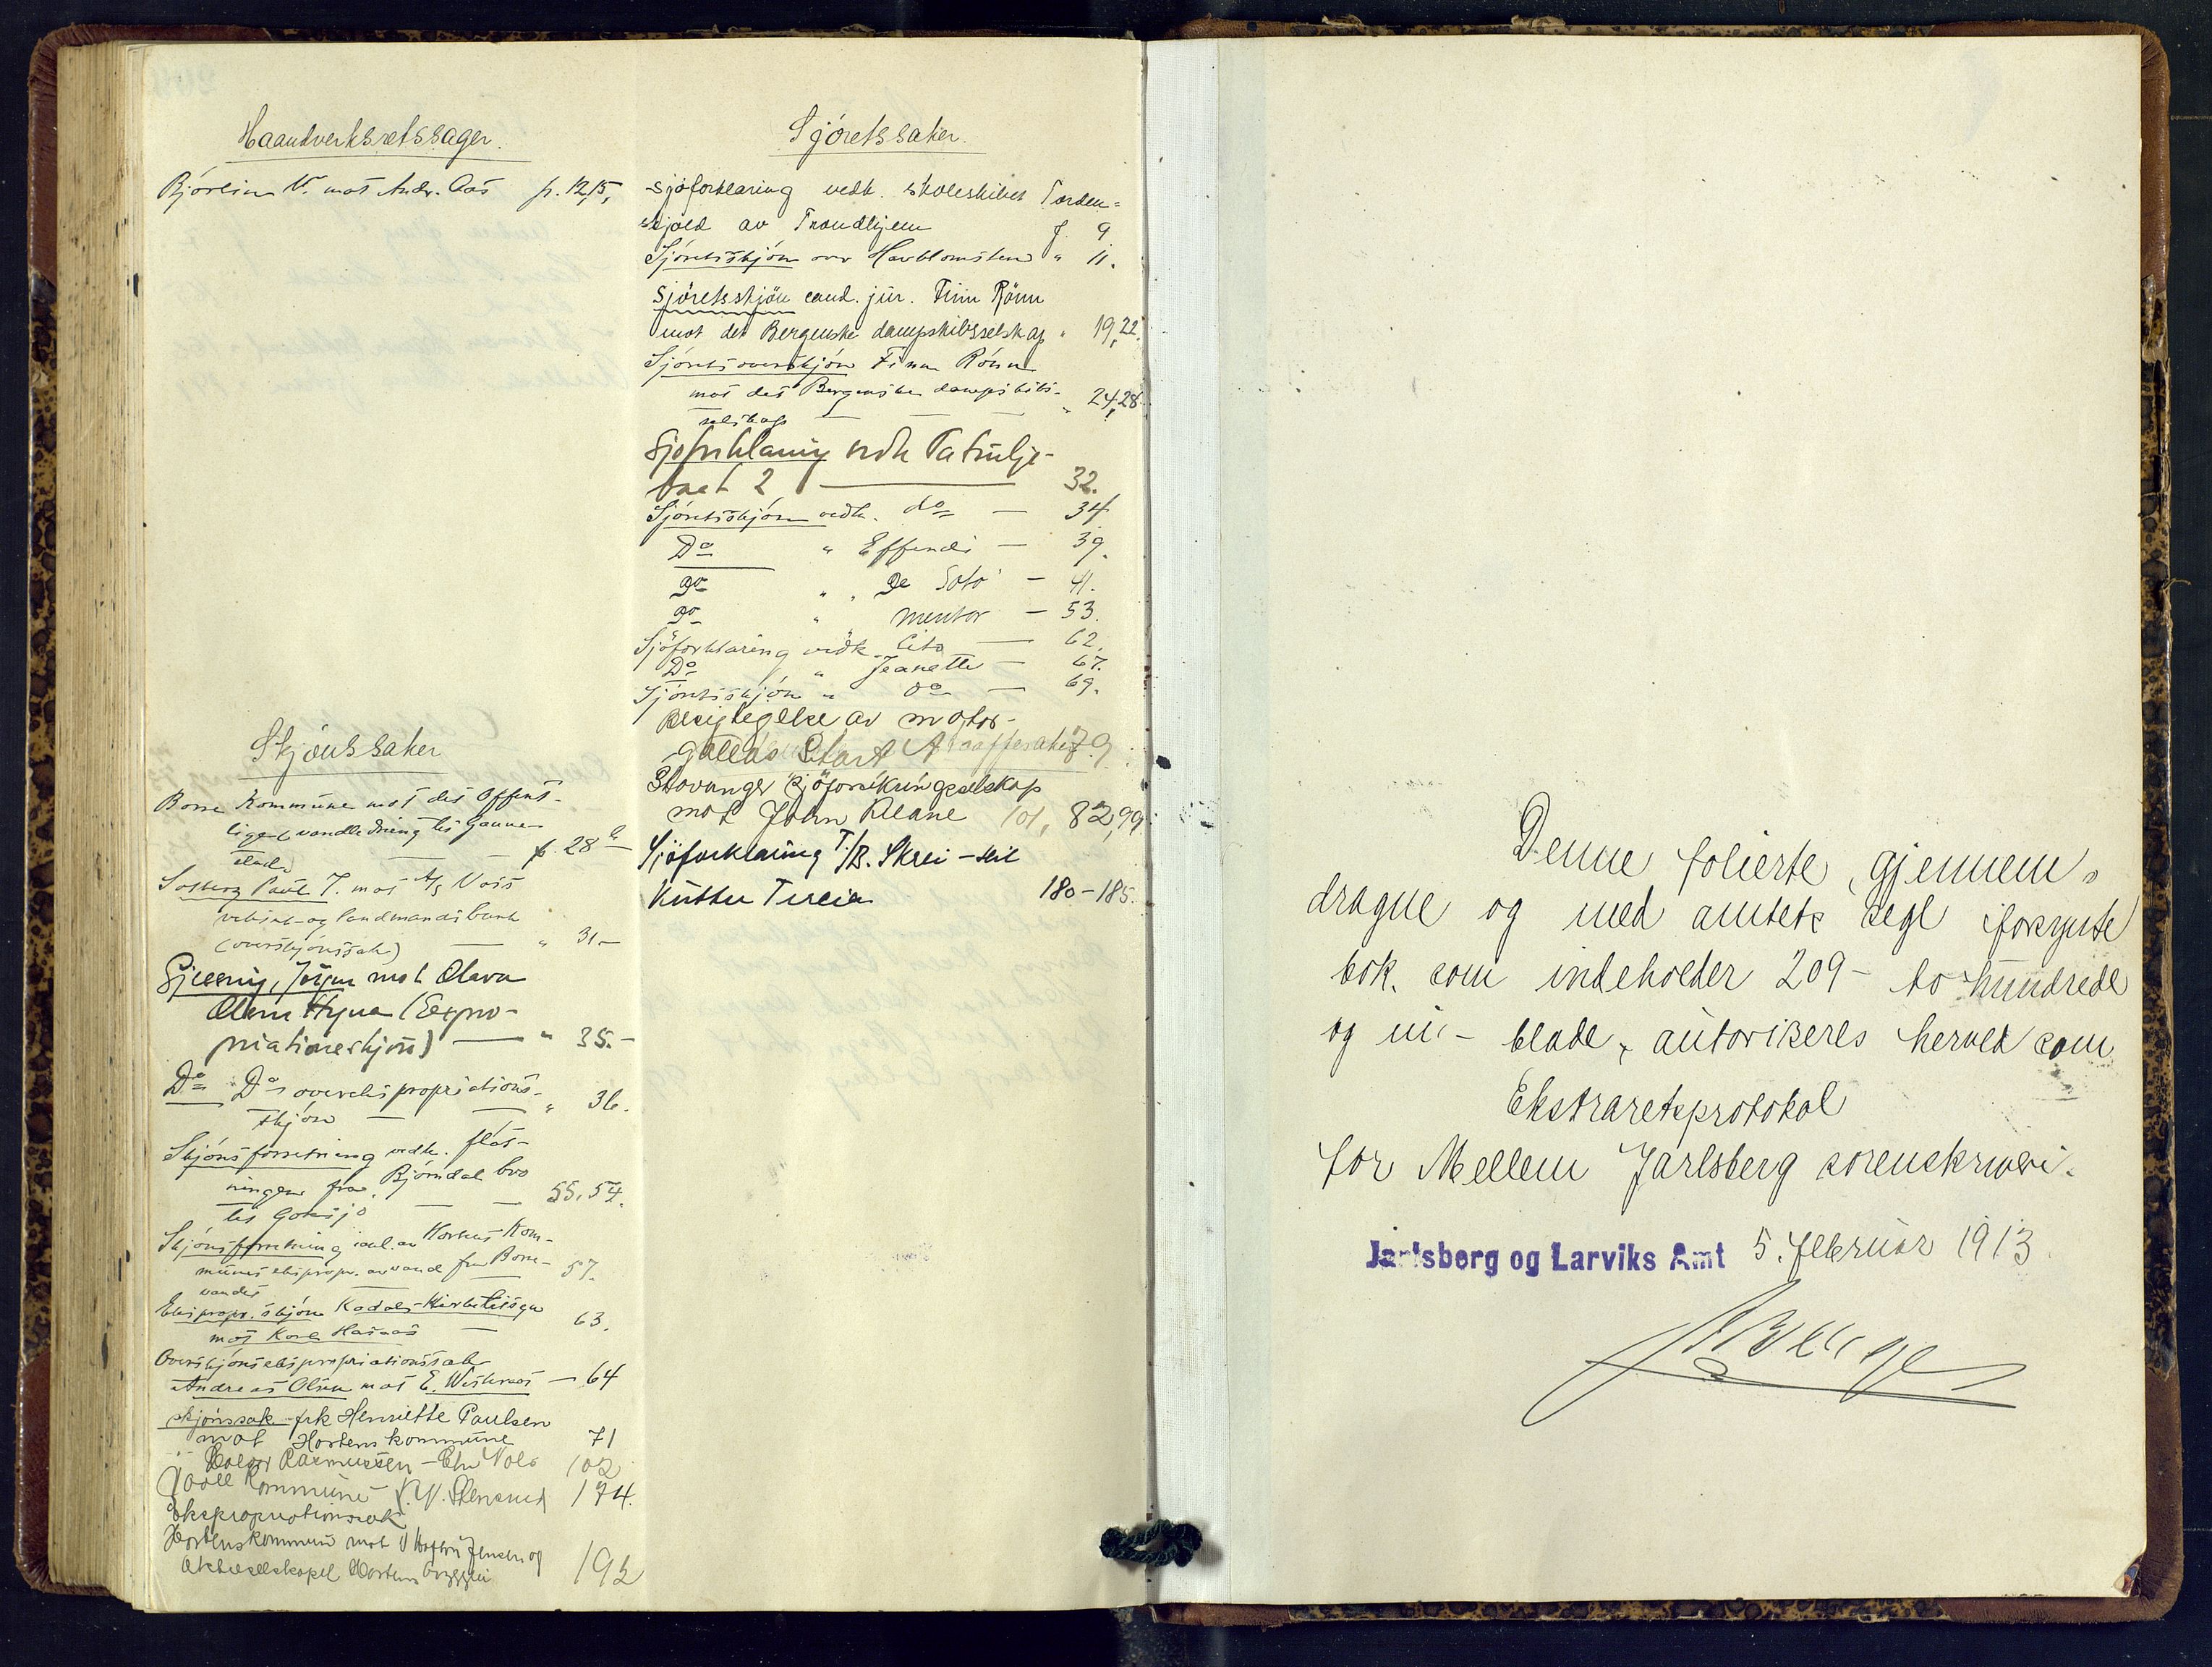 Haandverksretssager.
Bjørlin V. mot Andr. Aas p. 12,15,
Skjønssaker
Borre Kommune mot det Offent-
lige vandledning til Gannes-
stad p. 28 b
Solberg Paul J. mot A/S Voss
veksel- og landmandsbank
(overskjønssak) — " 31 —
Gjessing, Jørgen mot Olava
Olsen (Expro-
priationsskjøn) — " 35. —
Do " Do s overekspropriations-
skjøn — — " 36.
Skjønsforretning vedk. fløt-
ningen fra Bjørndal bro
til Goksjø — — 55, 54.
Skjønsforretning ival. av Hortens Kom-
munes ekspropr. av vand fra Borre-
vandet — 57.
Ekspropr. skjøn
mot Karl Hasaas — 63.
Overskjønsekspropriationssak
Andreas Olsen mot E. — 64
skjønssak frk Henriette Paulsen
mot Hortens kommune 71
Rasmussen — 102
kommune 174.
Ekspropriationssak
Hortens kommune mot Jensen og
Aktieselskapet Hortens 192
Sjøretssaker.
Sjøforklaring vedk. skoleskibet Torden=
skjold av Trondhjem f. 9
Sjøretsskjøn over Havblomsten " 11.
Sjøretsskjøn cand. jur. Finn Rønn
mot det Bergenske dampskibsselskap " 19, 22.
Sjøretsoverskjøn Finn Rønn
mot det Bergenske dampskibs-
selskap — — — " 24, 28
Sjøforklaring vedk
baat 2 — 32.
Sjøretsskjøn vedk. do — 34
Do " Effendi — 39.
Do " " De Soto — 41.
Do " Mentor — 53.
Sjøforklaring vedk. Cito — 62.
Do " Jeanette — 67.
Sjøretsskjøn " do — 69.
Besigtegelse av motor-
galeas Start 79
Stavanger Sjøforsikringsselskap
mot John Kleane 101, 82, 99
Sjøforklaring T/B. Skrei - Seil
Kutter Tereia 180 - 185.
Denne folierte, gjennem=
dragne og med amtets segl forsynte
bok, som indeholder 209 - to hundrede
og ni - blade, autoriseres herved som
Ekstraretsprotokol
for Mellem Jarlsberg sorenskriveri.
Jarlsberg og Larviks Amt 5. februar 1913.